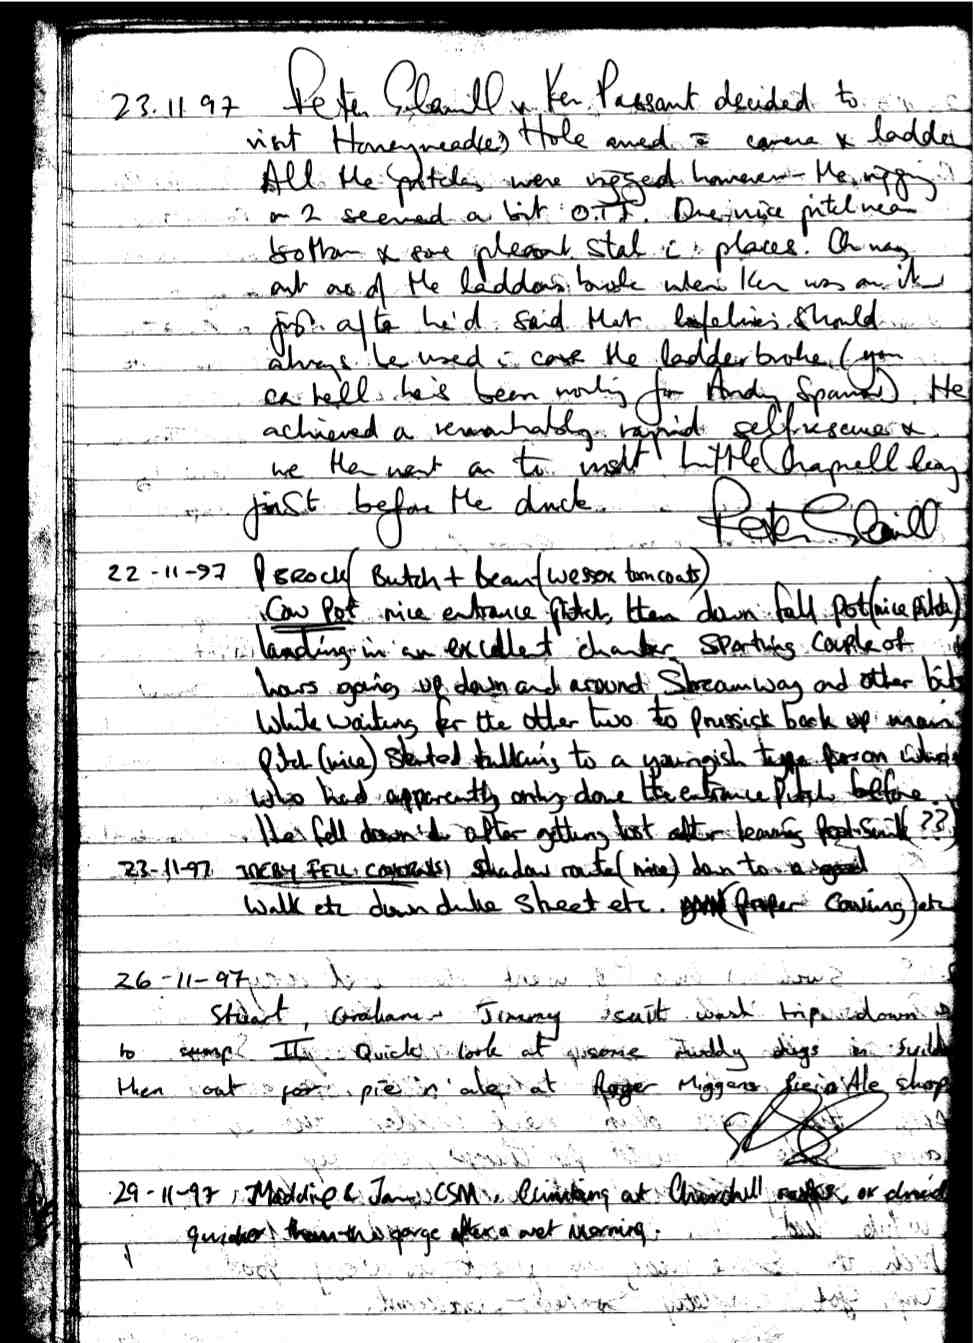 23.11 97 Peter Glanvill & Ken Passant decided to
visit Honeymead(e) Hole armed c camera & ladder
All the pitches were rigged however - the rigging
on 2 seemed a bit O.T.T. One nice pitch near
bottom & some pleasant stal in places. On way
out one of the ladders broke when Ken was on it
just after he'd said that lifelines should
always be used in case the ladder broke (you
can tell he's been working for Andy Sparrow). He
achieved a remarkably rapid self rescue &
we then went on to visit Little Chapnell
just before the duck.
Peter Glanvill
22-11-97 Butch + bean (wessex
Cow Pot nice entrance pitch, then down fall pot (nice pitch)
landing in an excellent chamber, sporting couple of
hours going up down and around Streamway and other bits
While waiting for the other two to prussick back up main
pitch (nice) started talking to a youngish type person
who had apparently only done the entrance pitch before
he fell down it after getting lost after leaving (??)
23-11-97 IREBY FELL CAVERN shadow route (nice) down to a good
walk etc down duke Street etc. (proper caving) etc
26-11-97
Stuart, Graham & Jimmy suit wash trip down
to sump II. Quick look at some muddy digs in
then out for pie n' ale at Roger Miggans Pie n' Ale shop
29-11-97, Maddie & Jane, CSM. Climbing at Churchill
quicker than the gorge after a wet morning.